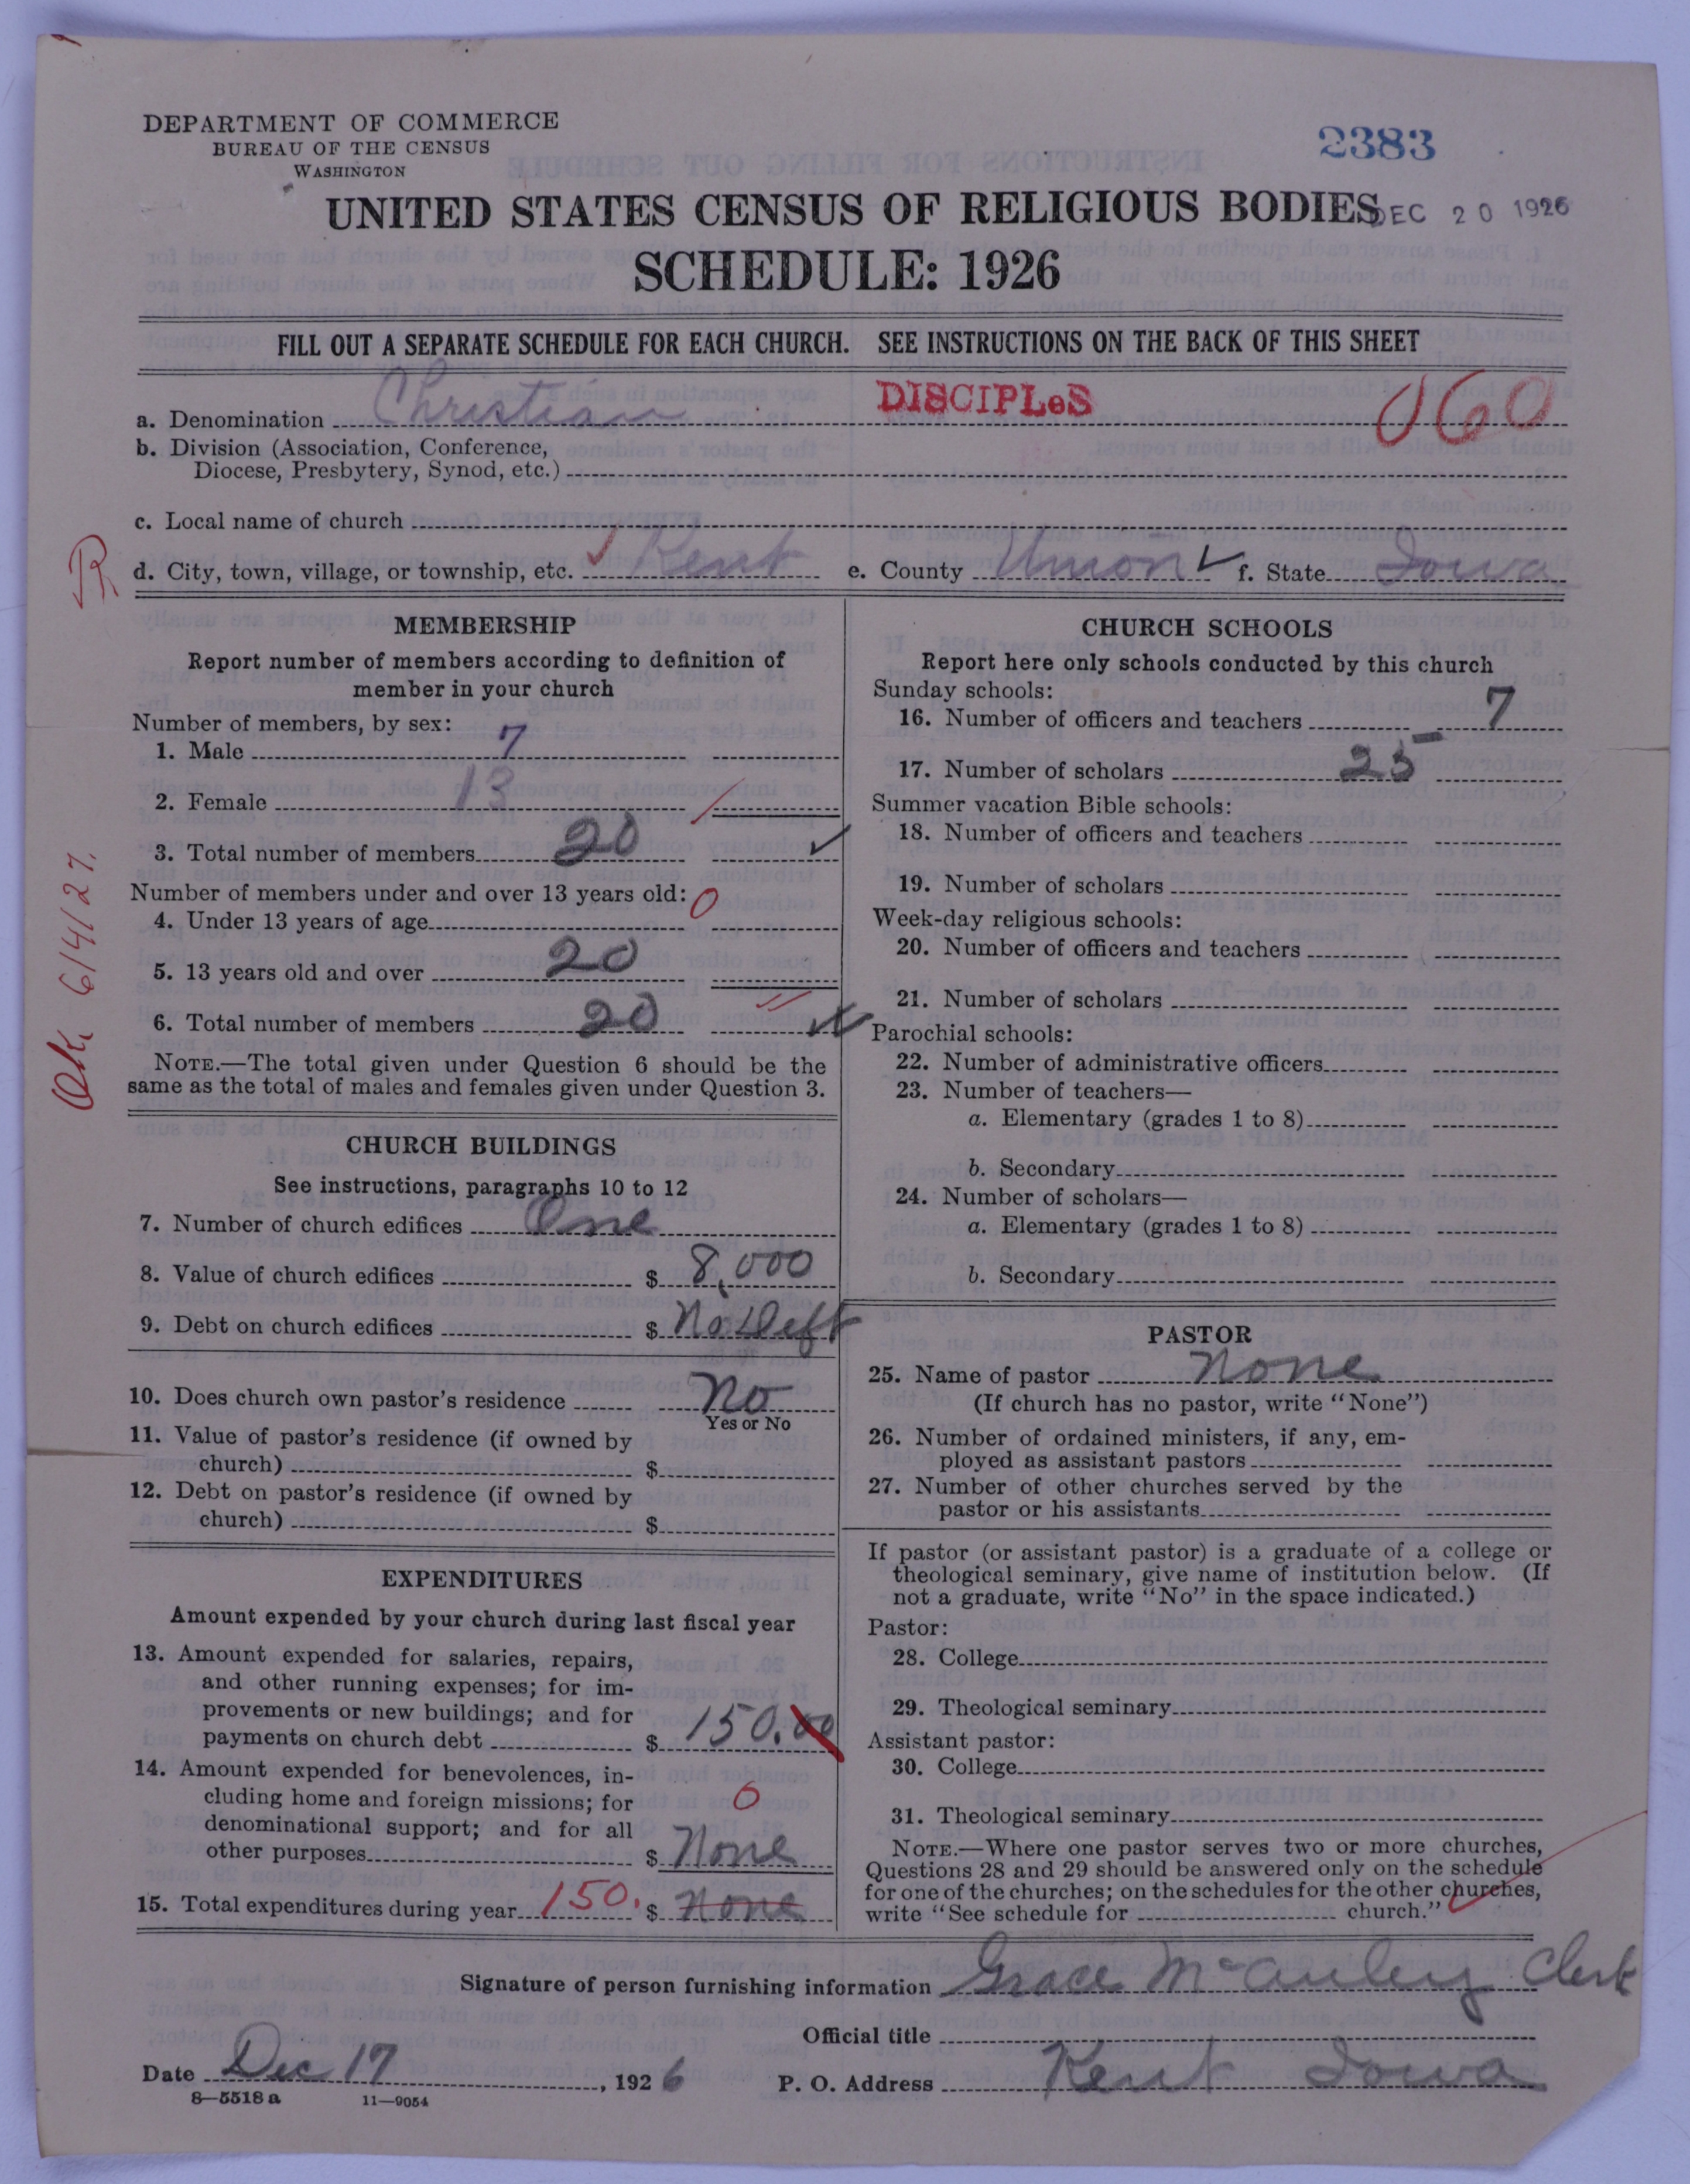 DEPARTMENT OF COMMERCE
BUREAU OF THE CENSUS
WASHINGTON
2383
UNITED STATES CENSUS OF RELIGIOUS BODIES
DEC 20 1926
SCHEDULE: 1926
FILL OUT A SEPARATE SCHEDULE FOR EACH CHURCH. SEE INSTRUCTIONS ON THE BACK OF THIS SHEET
a. Denomination Christian DISCIPLeS 060
b. Division (Association, Conference,
Diocese, Presbytery, Synod, etc.)
c. Local name of church
R
d. City, town, village, or township, etc. Kent e. County Union f. State Iowa
MEMBERSHIP
Report number of members according to definition of
member in your church
Number of members, by sex:
1. Male 7
2. Female 13
3. Total number of members 20
Number of members under and over 13 years old:
4. Under 13 years of age 0
5. 13 years old and over 20
6. Total number of members 20
NOTE.—The total given under Question 6 should be the
same as the total of males and females given under Question 3.
OK 6/4/27.
CHURCH BUILDINGS
See instructions, paragraphs 10 to 12
7. Number of church edifices One
8. Value of church edifices $ 8,000
9. Debt on church edifices $ No Deft
10. Does church own pastor's residence No
Yes or No
11. Value of pastor's residence (if owned by
church) $
12. Debt on pastor's residence (if owned by
church) $
EXPENDITURES
Amount expended by your church during last fiscal year
13. Amount expended for salaries, repairs,
and other running expenses; for im-
provements or new buildings; and for
payments on church debt $ 150.00
14. Amount expended for benevolences, in-
cluding home and foreign missions; for 0
denominational support; and for all
other purposes $ None
15. Total expenditures during year 150. $ None
CHURCH SCHOOLS
Report here only schools conducted by this church
Sunday schools:
16. Number of officers and teachers 7
17. Number of scholars 25
Summer vacation Bible schools:
18. Number of officers and teachers
19. Number of scholars
Week-day religious schools:
20. Number of officers and teachers
21. Number of scholars
Parochial schools:
22. Number of administrative officers
23. Number of teachers—
a. Elementary (grades 1 to 8)
b. Secondary
24. Number of scholars—
a. Elementary (grades 1 to 8)
b. Secondary
PASTOR
25. Name of pastor None
(If church has no pastor, write "None")
26. Number of ordained ministers, if any, em-
ployed as assistant pastors
27. Number of other churches served by the
pastor or his assistants
If pastor (or assistant pastor) is a graduate of a college or
theological seminary, give name of institution below. (If
not a graduate, write "No" in the space indicated.)
Pastor:
28. College
29. Theological seminary
Assistant pastor:
30. College
31. Theological seminary
NOTE.—Where one pastor serves two or more churches,
Questions 28 and 29 should be answered only on the schedule
for one of the churches; on the schedules for the other churches,
write "See schedule for church."
Signature of person furnishing information Grace McAuley Clerk
Official title
Date Dec 17, 1926 P. O. Address Kent Iowa
8—5518a 11—9054